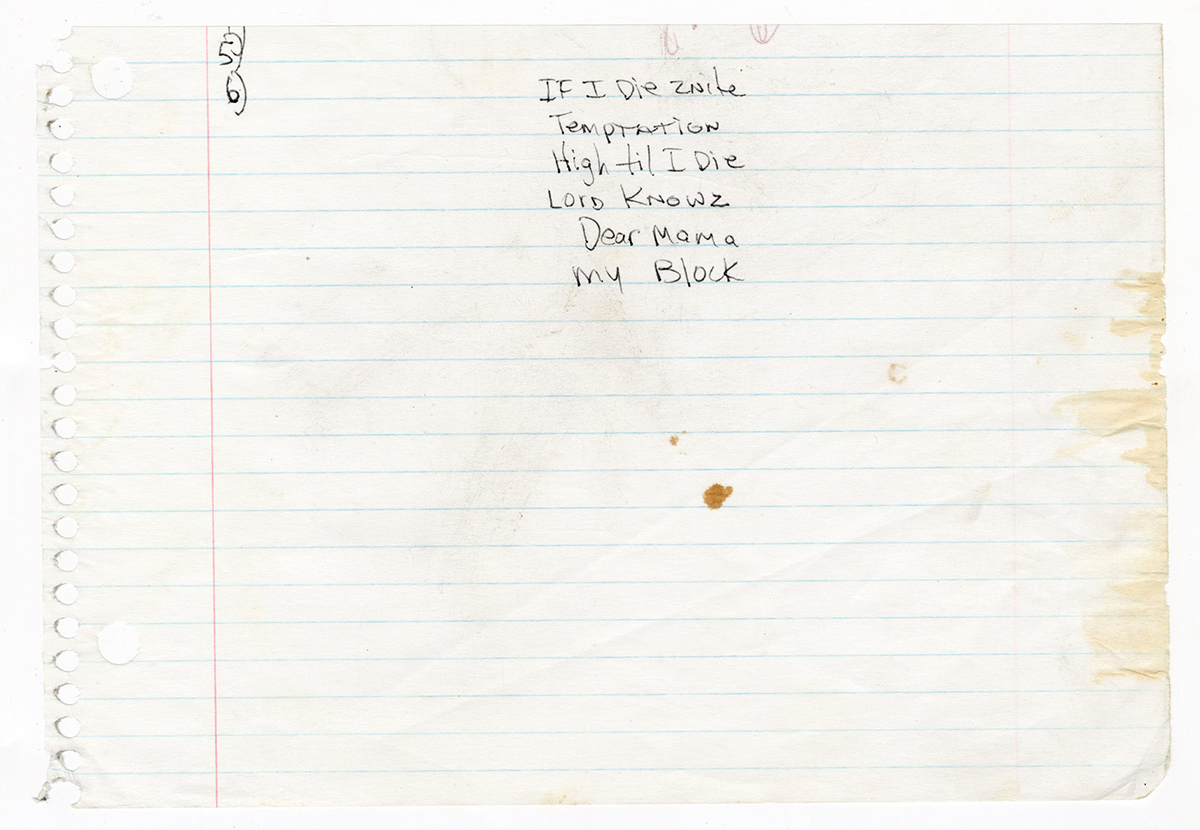 5)
6)
IF I Die 2Nite
Temptation
High til I Die
Lord Knowz
Dear Mama
My Block